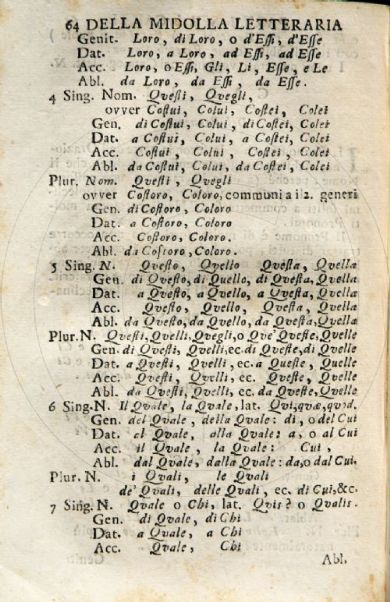 64 DELLA MIDOLLA LETTERARIA
Genit. Loro, di Loro, o d'Essi, d'Esse
Dat. Loro, a Loro, ad Essi, ad Esse
Acc. Loro, o Essi, Gli, Li, Esse, e Le
Abl. da Loro, da Essi, da Esse.
4 Sing. Nom. Qvesti, Qvegli,
ovver Costui, Colui, Costei, Colei
Gen. di Costui, Colui, di Costei, Colei
Dat. a Costui, Colui, a Costei, Colei
Acc. Costui, Colui, Costei, Colei
Abl. da Costui, Colui, da Costei, Colei
Plur. Nom. Qvesti, Qvegli
ovver Costoro, Coloro, communi a i 2. generi
Gen. di Costoro, Coloro
Dat. a Costoro, Coloro
Acc. Costoro, Coloro.
Abl. da Costoro, Coloro.
5 Sing. N. Qvesto, Qvello Qvesta, Qvella
Gen. di Qvesto, di Qvello, di Qvesta, Qvella
Dat. a Qvesto, a Qvello, a Qvesta, Qvella
Acc. Qvesto, Qvello, Qvesta, Qvella
Abl. da Qvesto, da Qvello, da Qvesta, Qvella
Plur. N. Qvesti, Qvelli, Qvegli, o Qve' Qveste, Qvelle
Gen. di Qvesti, Qvelli, ec. di Qveste, di Qvelle
Dat. a Qvesti, Qvelli, ec. a Qveste, Qvelle
Acc. Qvesti, Qvelli, ec. Qveste, Qvelle
Abl. da Qvesti, Qvelli, ec. da Qveste, Qvelle
6 Sing. N. Il Qvale, la Qvale, lat. Qvi, qvæ, qvod.
Gen. del Qvale, della Qvale: di, o del Cui
Dat. al Qvale, alla Qvale: a, o al Cui
Acc. il Qvale, la Qvale: Cui,
Abl. dal Qvale, dalla Qvale: da, o dal Cui.
Plur. N. i Qvali, le Qvali
de' Qvali, delle Qvali, ec. di Cui, &c.
7 Sing. N. Qvale o Chi, lat. Qvis? o Qvalis.
Gen. di Qvale, di Chi
Dat. a Qvale, a Chi
Acc. Qvale, Chi
Abl.